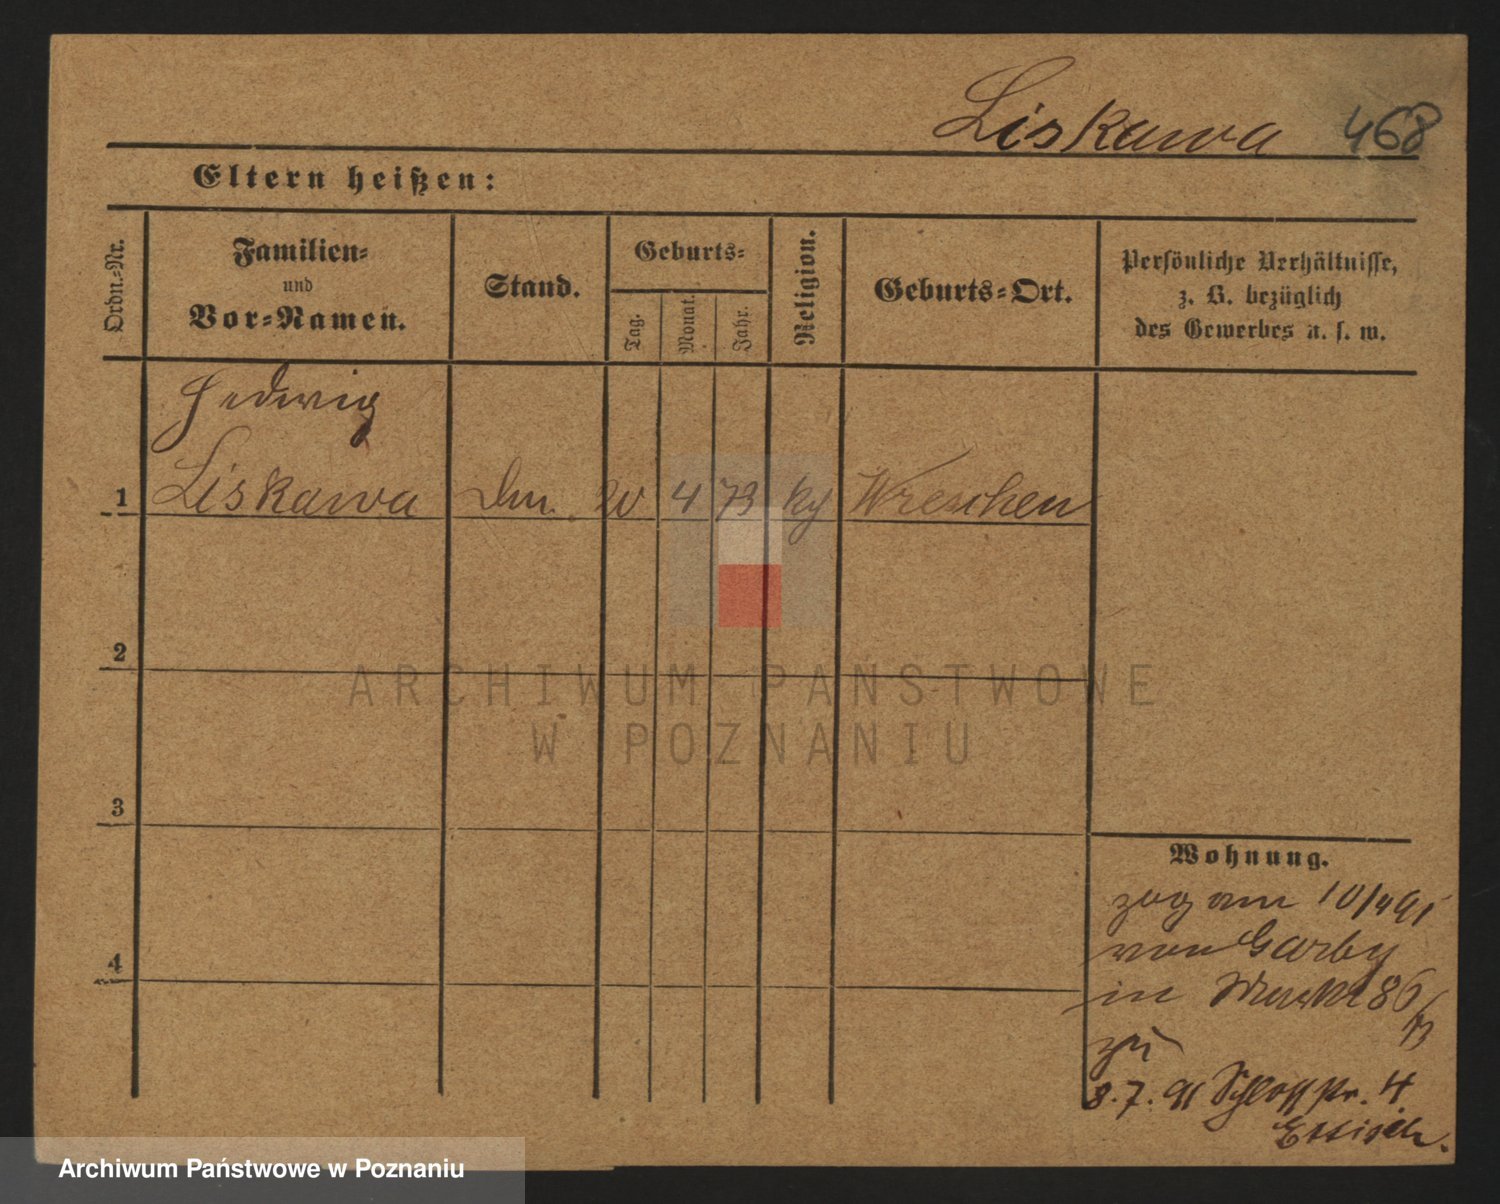 Liskawa 468
Eltern heißen:
Ordn.-Nr.
Familien-
und
Vor-Namen.
Stand.
Geburts-
Tag.
Monat.
Jahr.
Religion.
Geburts-Ort.
Persönliche Verhältnisse,
z. B. bezüglich
des Gewerbes u. s. w.
Hedwig
1 Liskawa 20 4 73 kg Wreschen
2
3
4
Wohnung.
zog am 10/4 91
von Garby
in Markt 86
zu
8. 7. 91 Schloßstr. 4
ARCHIWUM PAŃSTWOWE
W POZNANIU
Archiwum Państwowe w Poznaniu